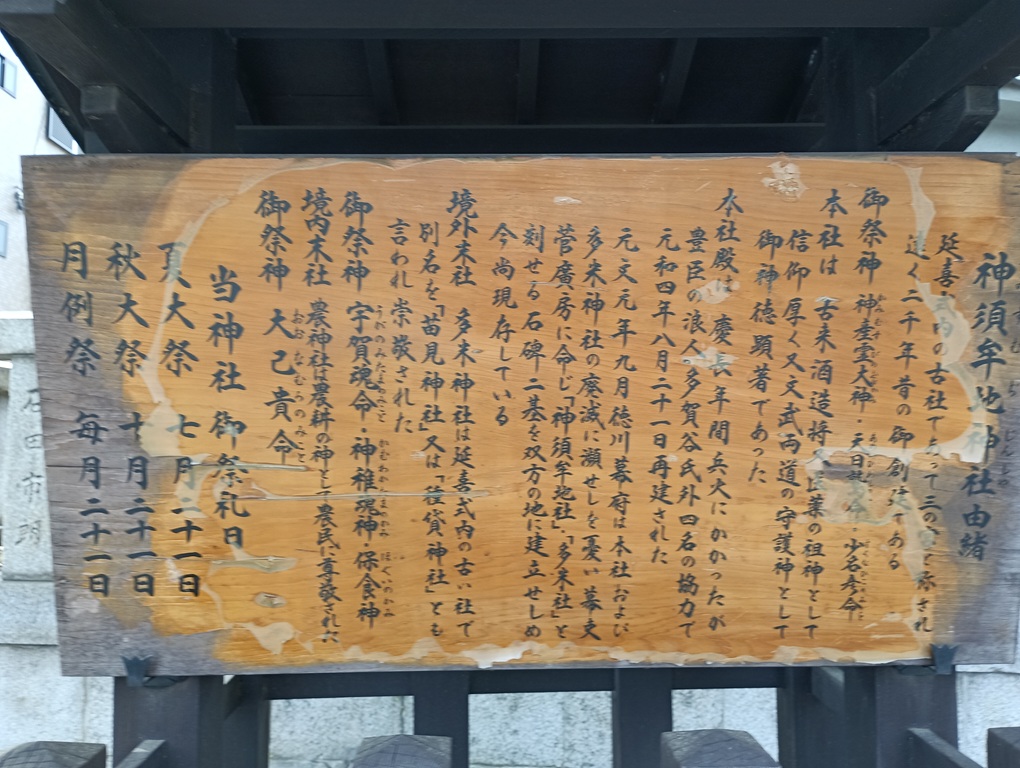 神須牟地神社由緒
延喜式内の古社であって三の宮と称され
遠く二千年昔の御創建である
御祭神 神産霊大神・天日鷲命・少名彦命
本社は 古来酒造将又医業の祖神として
信仰厚く又文武両道の守護神として
御神徳顕著であった
本社殿は慶長年間 兵火にかかったが
豊臣の浪人多賀谷氏外四名の協力で
元和四年八月二十一日再建された
元文元年九月徳川幕府は本社および
多米神社の廃滅に瀕せしを憂い幕吏
菅廣房に命じ「神須牟地社」「多米社」と
刻せる石碑二基を双方の地に建立せしめ
今尚現存している
境外末社 多米神社は延喜式内の古い社で
別名を「苗見神社」又は「種貸神社」とも
言われ 崇敬された
御祭神 宇賀魂命・神稚魂神・保食神
境内末社 農神社は農耕の神として農民に尊敬された
御祭神 大己貴命
当神社御祭礼日
夏大祭 七月二十一日
秋大祭 十月二十一日
月例祭 毎月二十一日